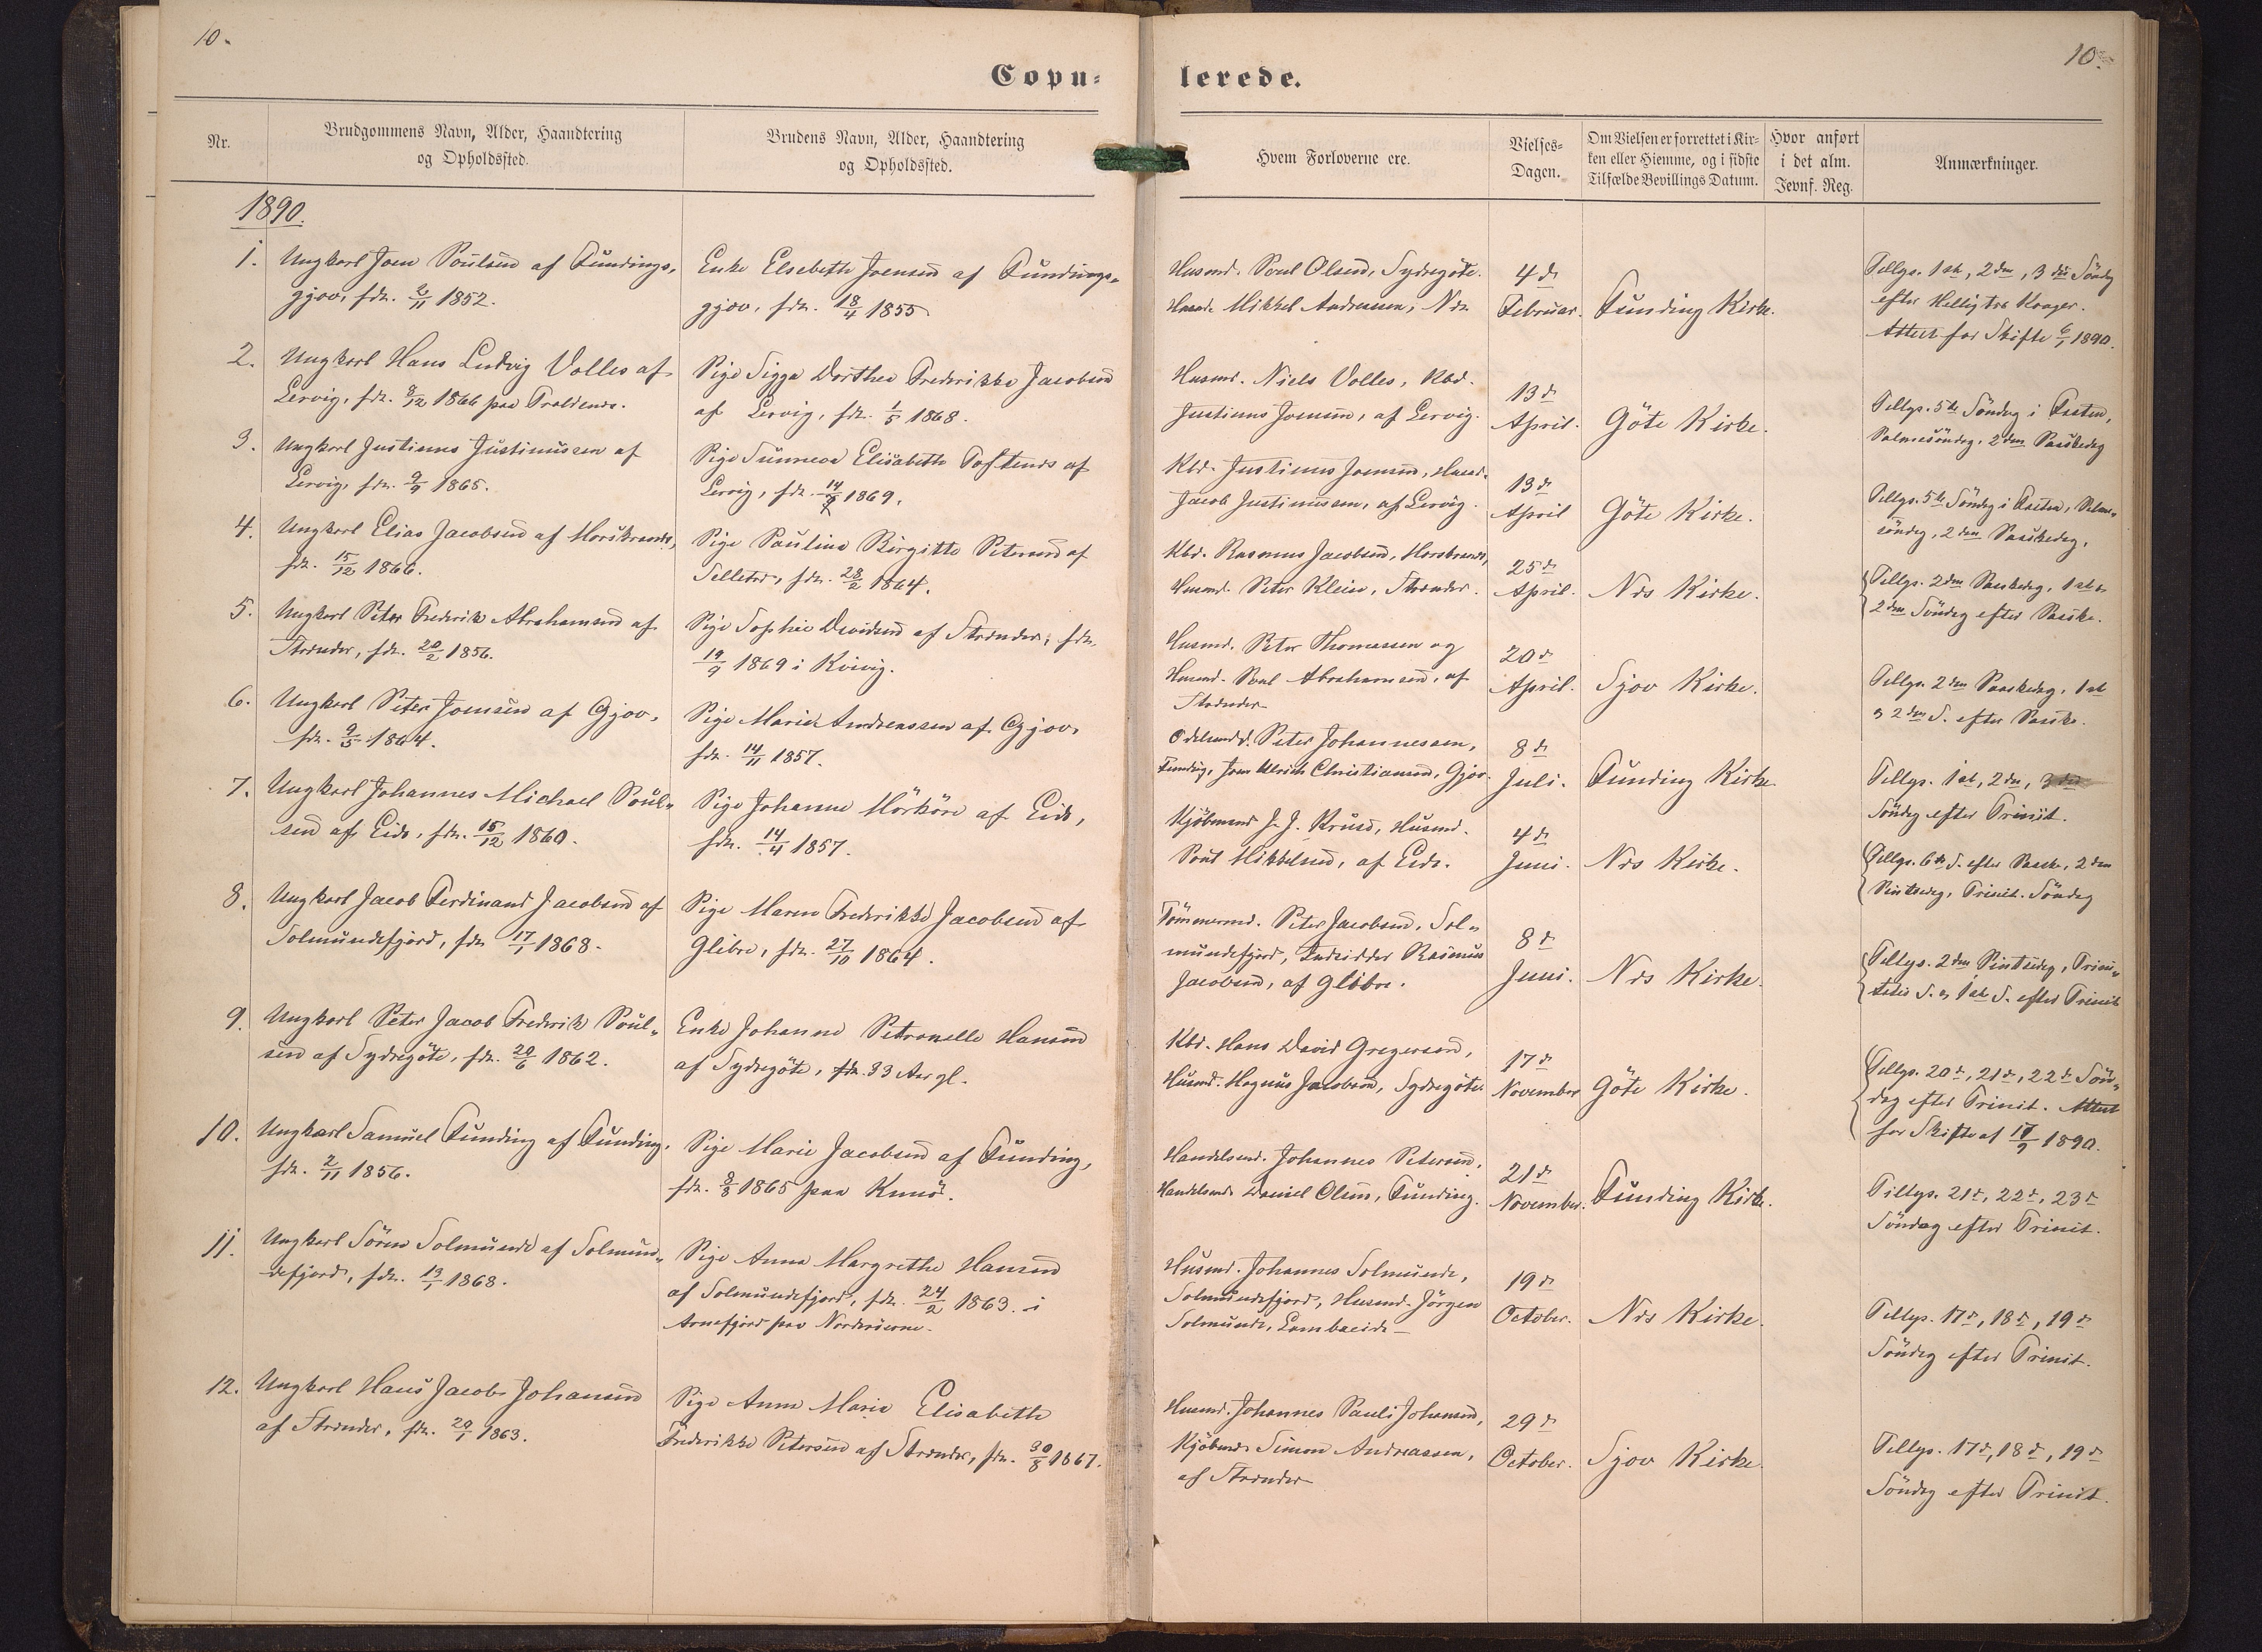 10.
10.
Copu-
lerede.
Nr.
Brudgommens Navn, Alder, Haandtering
og Opholdssted.
Brudens Navn, Alder, Haandtering
og Opholdssted.
Hvem Forloverne ere.
Vielses-
Dagen.
Om Vielsen er forrettet i Kir-
ken eller Hjemme, og i sidste
Tilfælde Bevillings Datum.
Hvor anført
i det alm.
Jevnf. Reg.
Anmærkninger.
1890.
1.
Ungkarl Joen Poulsen af Fundings-
gjov, fdt. 2/11 1852.
Enke Elsebeth Joensen af Fundings-
gjov, fdt. 18/4 1855.
Husmd. Poul Olsen, Sydregöte.
Husmd. Mikkel Andreasen, Næs
4de
Februar.
Funding Kirke.
Tillys. 1ste, 2den, 3die Söndg
efter Hellig tre Konger.
Attest for Skifte 6/1 1890.
2.
Ungkarl Hans Ludvig Volles af
Lervig, fdt. 8/12 1866 paa Troldenæs.
Pige Sigga Dorthea Frederikke Jacobsen
af Lervig, fdt. 1/5 1868.
Husmd. Niels Volles, Kbd.
Justinus Joensen, af Lervig.
13de
April.
Göte Kirke.
Tillys. 5te Söndag i Fasten,
Palmesöndag, 2den Paaskedag
3.
Ungkarl Justinus Justinussen af
Lervig, fdt. 9/9 1865.
Pige Sunneva Elisabeth Toftenes af
Lervig, fdt. 14/ 1869.
Kbd. Justinus Joensen, Husmd.
Jacob Justinussen, af Lervig.
13de
April
Göte Kirke.
Tillys. 5te Söndag i Fasten, Palme-
söndag, 2den Paaskedag.
4.
Ungkarl Elias Jacobsen af Morskranes,
fdt. 15/12 1866.
Pige Pauline Birgitte Petersen af
Selletræ, fdt. 28/2 1864.
Kbd. Rasmus Jacobsen, Morskranes,
Husmd. Peter Klein, Strænder.
25de
April.
Næs Kirke.
Tillys. 2den Paaskedag, 1ste &
2den Söndag efter Paaske.
5.
Ungkarl Peter Frederik Abrahamsen af
Strænder, fdt. 20/2 1856.
Pige Sophie Davidsen af Strænder, fdt.
19/9 1869 i Kvivig.
Husmd. Peter Thomassen og
Husmd. Poul Abrahamsen, af
Strænder
20de
April.
Sjov Kirke.
Tillys. 2den Paaskedag, 1ste
& 2den S. efter Paaske.
6.
Ungkarl Peter Joensen af Gjov,
fdt. 9/5 1864.
Pige Marie Andreassen af Gjov,
fdt. 14/11 1857.
Odelsmd. Peter Johannessen,
Funding, Joen Ulrich Christiansen, Gjov.
8de
Juli.
Funding Kirke.
Tillys. 1ste, 2den, 3die
Söndag efter Trinit.
7.
Ungkarl Johannes Michael Poul-
sen af Eide, fdt. 15/12 1860.
Pige Johanne Mörköre af Eide,
fdt. 14/4 1857.
Kjöbmand J. J. Kruse, Husmd.
Poul Mikkelsen, af Eide.
4de
Juni.
Næs Kirke.
Tillys. 6te S. efter Paaske, 2den
Pintsedag, Trinit. Söndag
8.
Ungkarl Jacob Ferdinand Jacobsen af
Solmundefjord, fdt. 17/1 1868.
Pige Maren Frederikke Jacobsen af
Glibre, fdt. 27/10 1864.
Tömmermd. Peter Jacobsen, Sol-
mundefjord, Indsidder Rasmus
Jacobsen, af Glibre.
8de
Juni.
Næs Kirke.
Tillys. 2den Pintsedag, Trini-
tatis S. & 1ste S. efter Trinit
9.
Ungkarl Peter Jacob Frederik Poul-
sen af Sydregöte, fdt. 20/6 1862.
Enke Johanne Petronelle Hansen
af Sydregöte, fdt. 33 Aar gl.
Kbd. Hans David Gregersen,
Husmd. Magnus Jacobsen, Sydregöte
17de
November
Göte Kirke.
Tillys. 20de, 21de, 22de Sön-
dag efter Trinit. Attest
for Skifte af 17/9 1890.
10.
Ungkarl Samuel Funding af Funding,
fdt. 2/11 1856.
Pige Marie Jacobsen af Funding,
fdt. 8/8 1865 paa Kunö.
Handelsmd. Johannes Petersen,
Handelsmd. Daniel Olsen, Funding.
21de
November.
Funding Kirke.
Tillys. 21de, 22de, 23de
Söndag efter Trinit.
11.
Ungkarl Sören Solmunde af Solmun-
defjord, fdt. 13/1 1868.
Pige Anna Margrethe Hansen
af Solmundefjord, fdt. 24/2 1863. i
Arnefjord paa Norderöerne.
Husmd. Johannes Solmunde,
Solmundefjord, Husmd. Jörgen
Solmunde, Lambareide
19de
October.
Næs Kirke.
Tillys. 17de, 18de, 19de
Söndag efter Trinit.
12.
Ungkarl Hans Jacob Johansen
af Strænder, fdt. 20/1 1863.
Pige Anna Maria Elisabeth
Frederikke Petersen af Strænder, fdt. 30/8 1867.
Husmd. Johannes Pauli Johansen,
Kjöbmd. Simon Andreassen,
af Strænder
29de
October.
Sjov Kirke.
Tillys. 17de, 18de, 19de
Söndag efter Trinit.